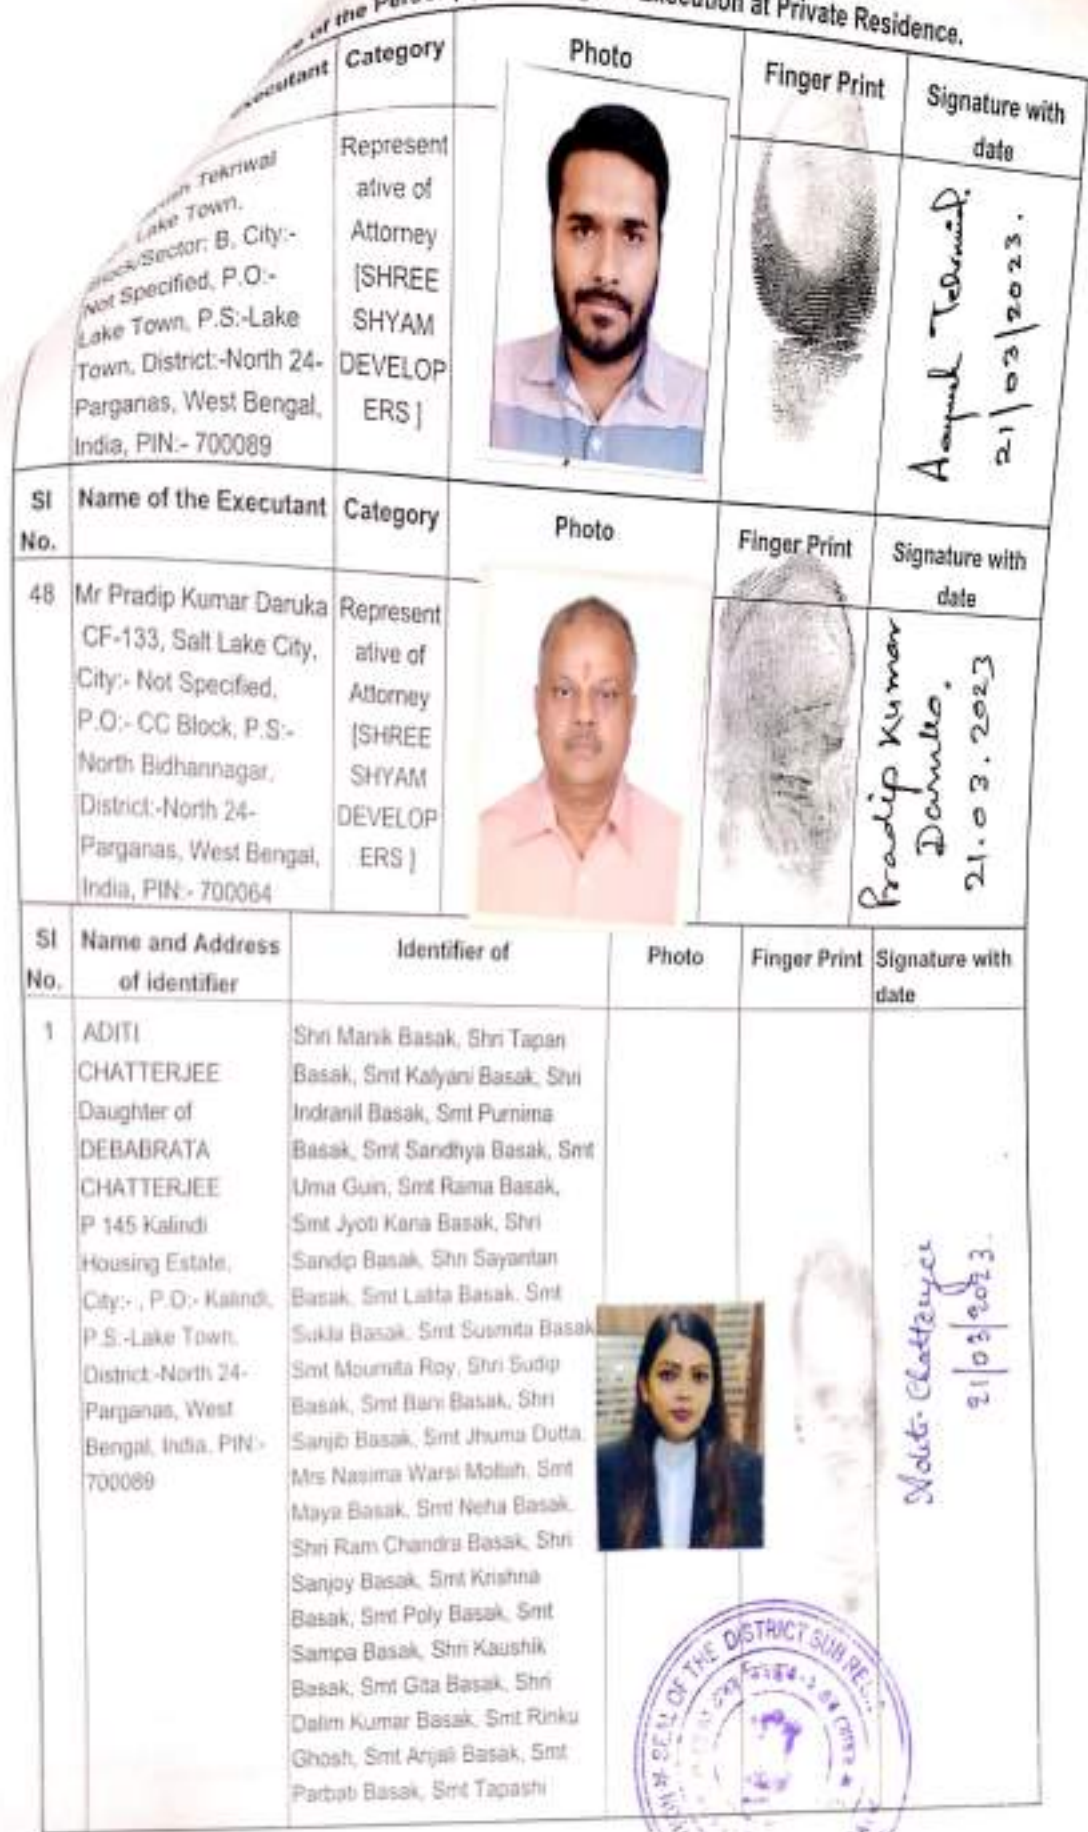 of the
Execution at Private Residence.
Executant
Category
Photo
Finger Print
Signature with
date
Tekriwal
Lake Town,
Block/Sector: B, City:-
Not Specified, P.O:-
Lake Town, P.S:-Lake
Town, District:-North 24-
Parganas, West Bengal,
India, PIN:- 700089
Represent
ative of
Attorney
[SHREE
SHYAM
DEVELOP
ERS ]
21/03/2023.
SI
No.
Name of the Executant
Category
Photo
Finger Print
Signature with
date
48
Mr Pradip Kumar Daruka
CF-133, Salt Lake City,
City:- Not Specified,
P.O:- CC Block, P.S:-
North Bidhannagar,
District:-North 24-
Parganas, West Bengal,
India, PIN:- 700064
Represent
ative of
Attorney
[SHREE
SHYAM
DEVELOP
ERS ]
Pradip Kumar
Daruka.
21.03.2023
SI
No.
Name and Address
of identifier
Identifier of
Photo
Finger Print
Signature with
date
1
ADITI
CHATTERJEE
Daughter of
DEBABRATA
CHATTERJEE
P 145 Kalindi
Housing Estate,
City:- , P.O:- Kalindi,
P.S.-Lake Town,
District:-North 24-
Parganas, West
Bengal, India, PIN:-
700089
Shri Manik Basak, Shri Tapan
Basak, Smt Kalyani Basak, Shri
Indranil Basak, Smt Purnima
Basak, Smt Sandhya Basak, Smt
Uma Guin, Smt Rama Basak,
Smt Jyoti Kana Basak, Shri
Sandip Basak, Shri Sayantan
Basak, Smt Lalita Basak, Smt
Sukla Basak, Smt Susmita Basak
Smt Moumita Roy, Shri Sudip
Basak, Smt Bani Basak, Shri
Sanjib Basak, Smt Jhuma Dutta,
Mrs Nasima Warsi Mollah, Smt
Maya Basak, Smt Neha Basak,
Shri Ram Chandra Basak, Shri
Sanjoy Basak, Smt Krishna
Basak, Smt Poly Basak, Smt
Sampa Basak, Shri Kaushik
Basak, Smt Gita Basak, Shri
Dalim Kumar Basak, Smt Rinku
Ghosh, Smt Anjali Basak, Smt
Parbati Basak, Smt Tapashi
Aditi Chatterjee
21/03/2023.
SEAL OF THE DISTRICT SUB